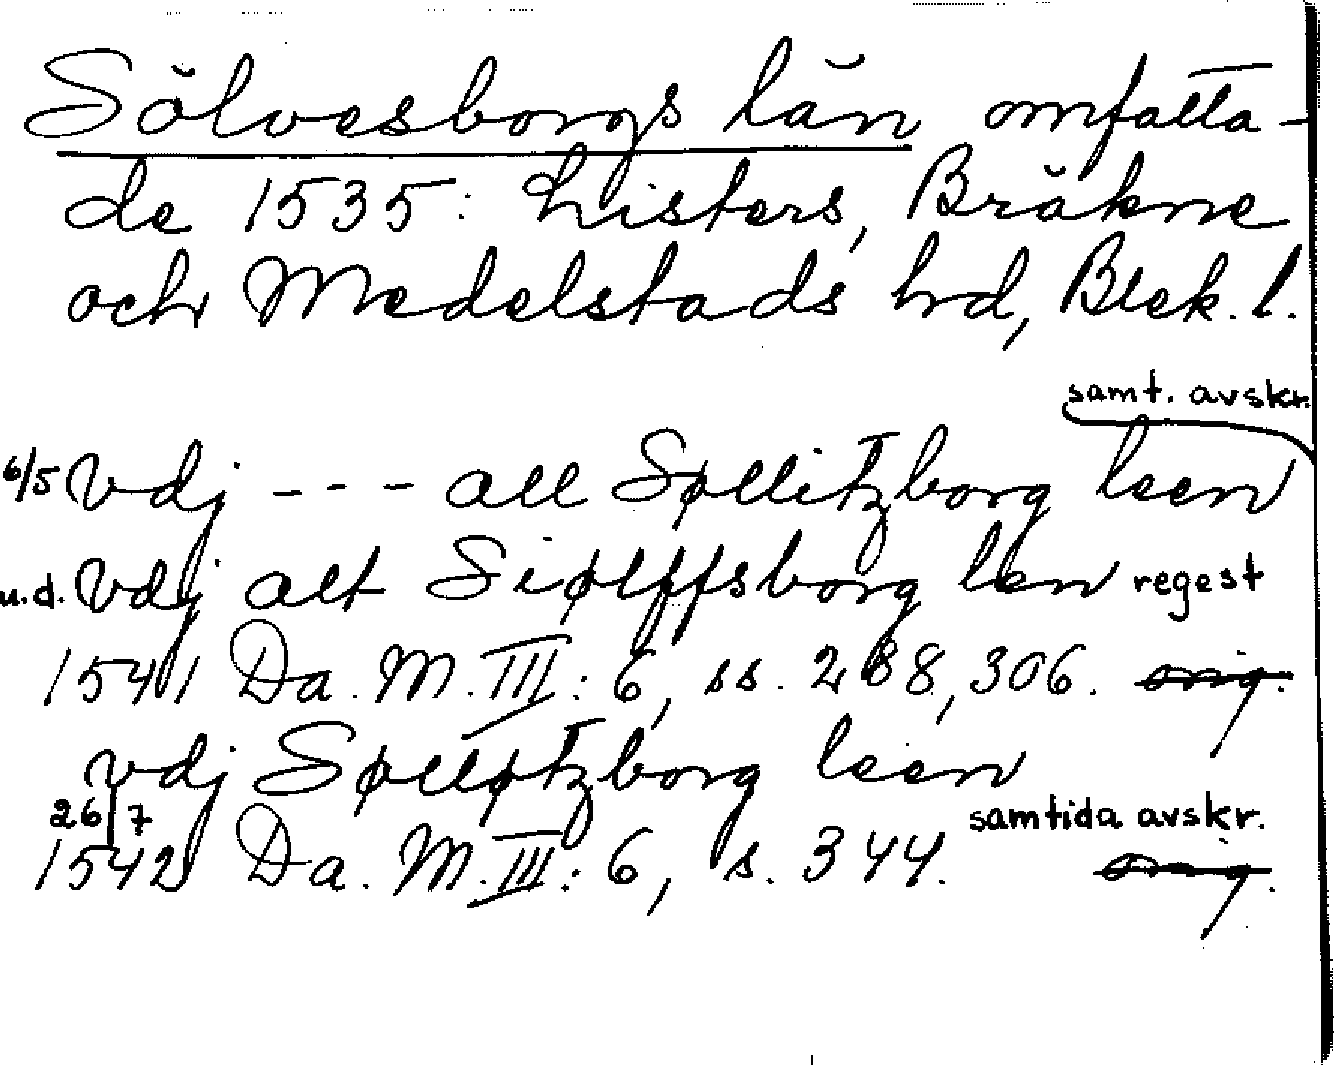 Sölvesborgs län omfatta-
de 1535: Listers, Bräkne
och Medelstads hd, Blek. l.
samt. avskr.
6/5 vdj --- all Søllitzborg leen
u.d. vdj alt Siølffsborg len regest
1541 Da. M. III: 6, ss. 288, 306. orig.
vdj Sølløtzborg leen
26/7 samtida avskr.
1542 Da. M. III: 6, s. 344. orig.